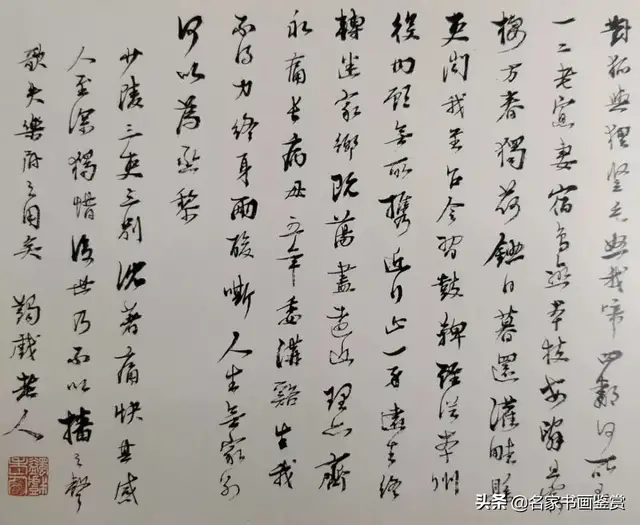 對狐與狸豎毛怒我啼四鄰何所有
一二老寡妻宿鳥戀本枝安辭且窮
棲方春獨荷鋤日暮還灌畦縣
吏聞我至召令習鼓鞞雖從本州
役內顧無所攜近行止一身遠去終
轉迷家鄉既蕩盡遠近理亦齊
永痛長病母五年委溝谿生我
不得力終身兩酸嘶人生無家別
何以為蒸黎
少陵三吏三別沈著痛快其感
人至深獨惜後世乃不以播之聲
歌失樂府之用矣 蠲戲老人
头条 @名家书画鉴赏